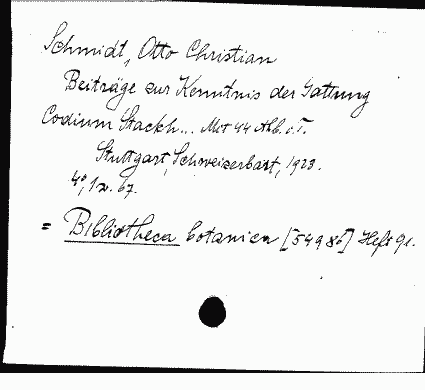 Schmidt, Otto Christian
Beiträge zur Kenntnis der Gattung
Codium Stackh... Mit 44 Abb. i. T.
Stuttgart, Schweizerbart, 1923.
4°, 1 v. 67.
= Bibliotheca botanica [54986] Heft 91.